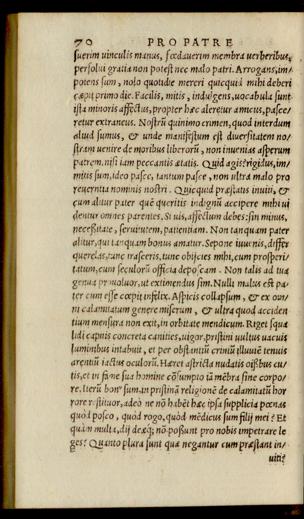 70 PRO PATRE
suerim uinculis manus, sed dauerim membra uerberibus,
persolui gratia non potest nec malo patri. Arrogans, im-
potens sum, nolo quotidie mereri quicquid mihi deberi
cœpit primo die. Facilis, mitis, indulgens, uocabula sunt
ista minoris affectus, propter hæc aleretur amicus, pasce
retur extraneus. Nostrũ quinimo crimen, quod interdum
aliud sumus, & unde manifestum est diuersitatem no-
stram uenire de moribus liberorũ, non inuenias asperum
patrem, nisi iam peccantis ætatis. Quid agis? rigidus, im
mitis sum, ideo pasce, tantum pasce, non ultra malo pro
reuerentia nominis nostri. Quicquid præstatis inuiti, &
cum alitur pater quẽ queritis indignũ accipere mihi ui
dentur omnes parentes. Si uis, affectum debes: sin minus,
necessitate, seruitutem, patientiam. Non tanquam pater
alitur, qui tanquam bonus amatur. Sepone iuuenis, differ
querelas, tunc irasceris, tunc obijcies mihi, cum prosperi
tatum, cum seculorũ officia deposcam. Non talis ad tua
genua prouoluor, ut extimendus sim. Nullus malus est pa-
ter cum esse cœpit infelix. Aspicis collapsum, & ex omni
calamitatum genere miserum, & ultra quod acciden
tium mensura non exit, in orbitate mendicum. Riget squa
lidi capitis concreta canities, uigor, pristini uultus uacuis
luminibus intabuit, et per obstantiũ criniũ illuuiẽ tenuis
arentiũ iactus oculorũ. Hæret astricta nudatis ossibus cu-
tis, et in fame sua homine cõsumpto iã mẽbra sine corpo
re. Iterũ bon' sum, in pristinã religionẽ de calamitatũ hor
rore restituor, adeò ne nõ habẽt hæc ipsa supplicia preces
quòd posco, quòd rogo, quòd mẽdicus sum filij mei? Et
quàm multa, dij deæq;, nõ possunt pro nobis impetrare le
ges? Quanto plura sunt quæ negantur cum præstant in-
uiti?